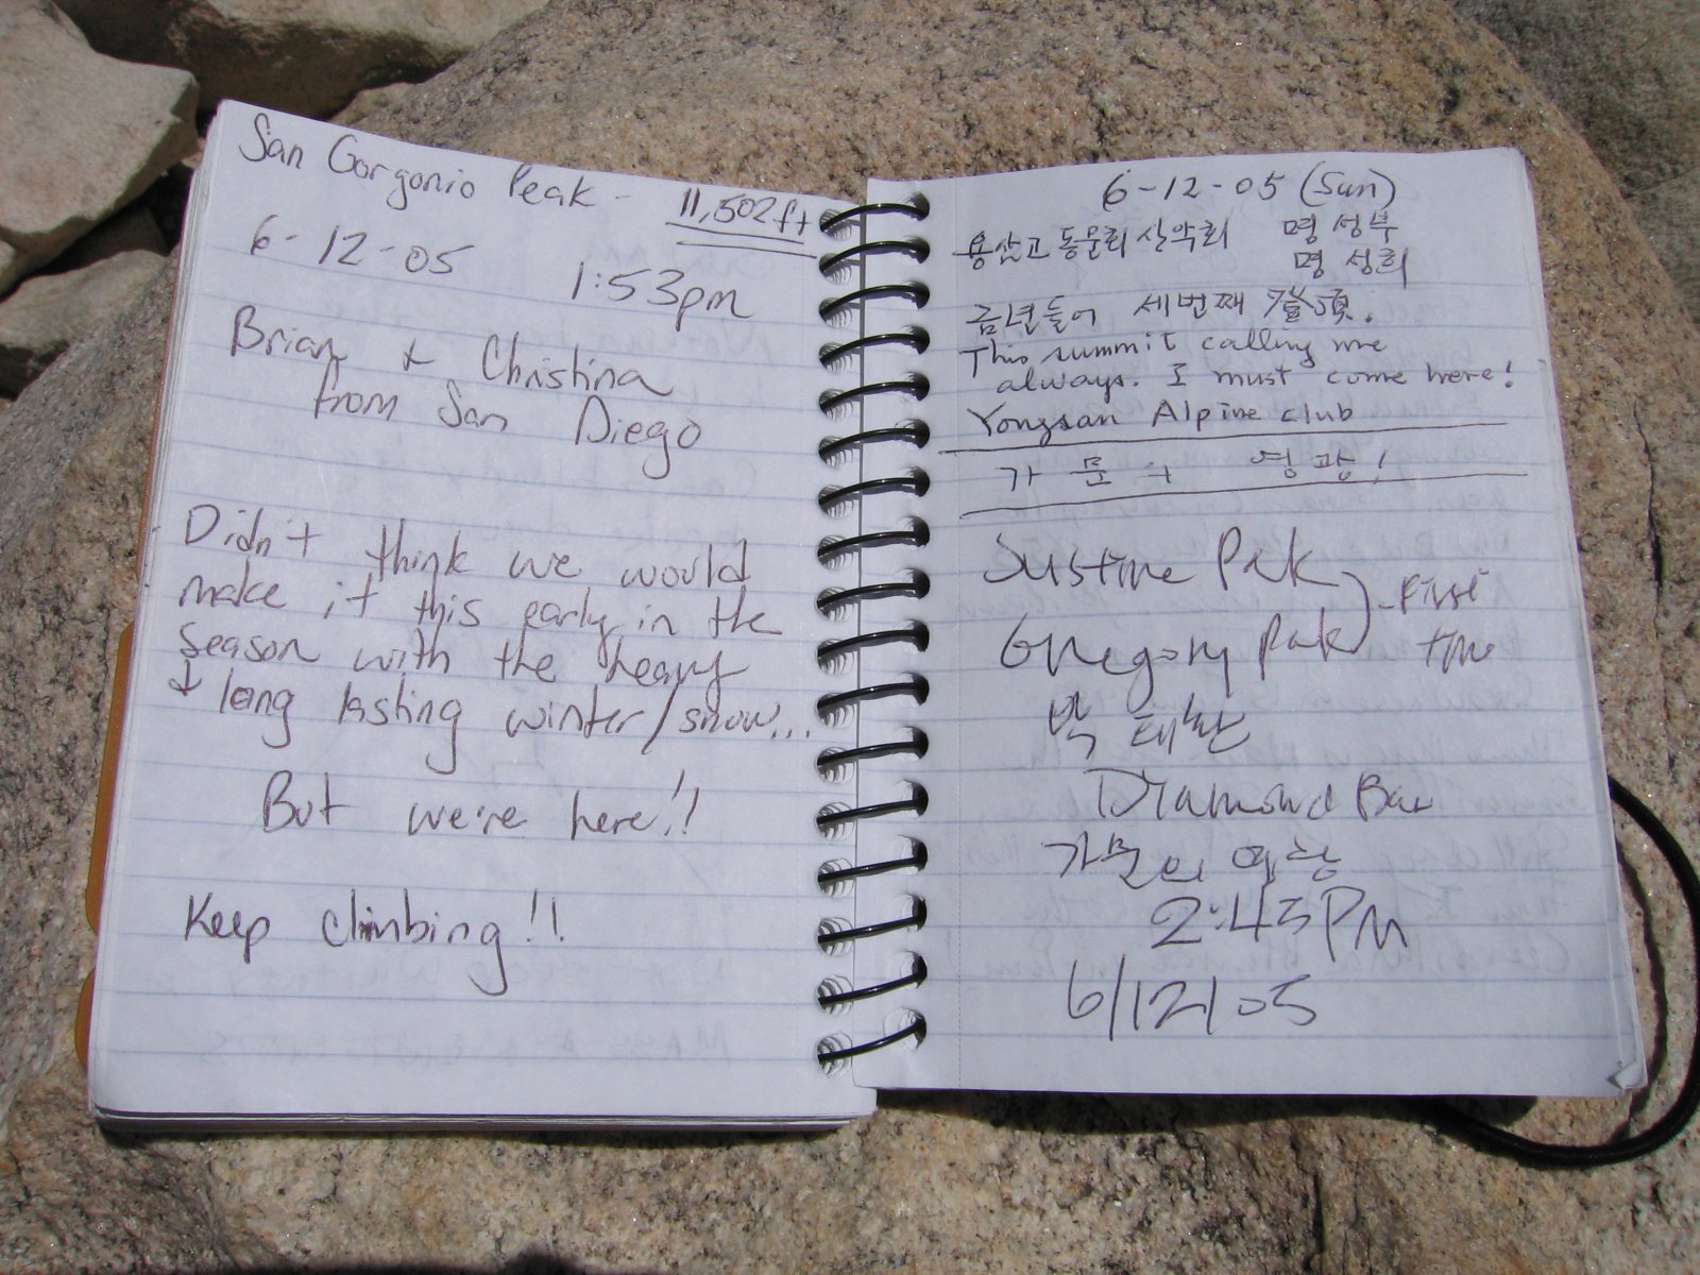 San Gorgonio Peak - 11,502ft
6-12-05
1:53pm
Brian & Christina
from San Diego
Didn't think we would
make it this early in the
season with the heavy
& long lasting winter/snow...
But we're here!!
Keep climbing!!
6-12-05 (Sun)
용산고 동문회 산악회 명성부
명성희
금년들어 세번째
This summit calling me
always. I must come here!
Yongsan Alpine club
가문의 영광!
Justine Pak
Gregory Pak - First
time
박태환
Diamond Bar
가문의 영광
2:45PM
6/12/05